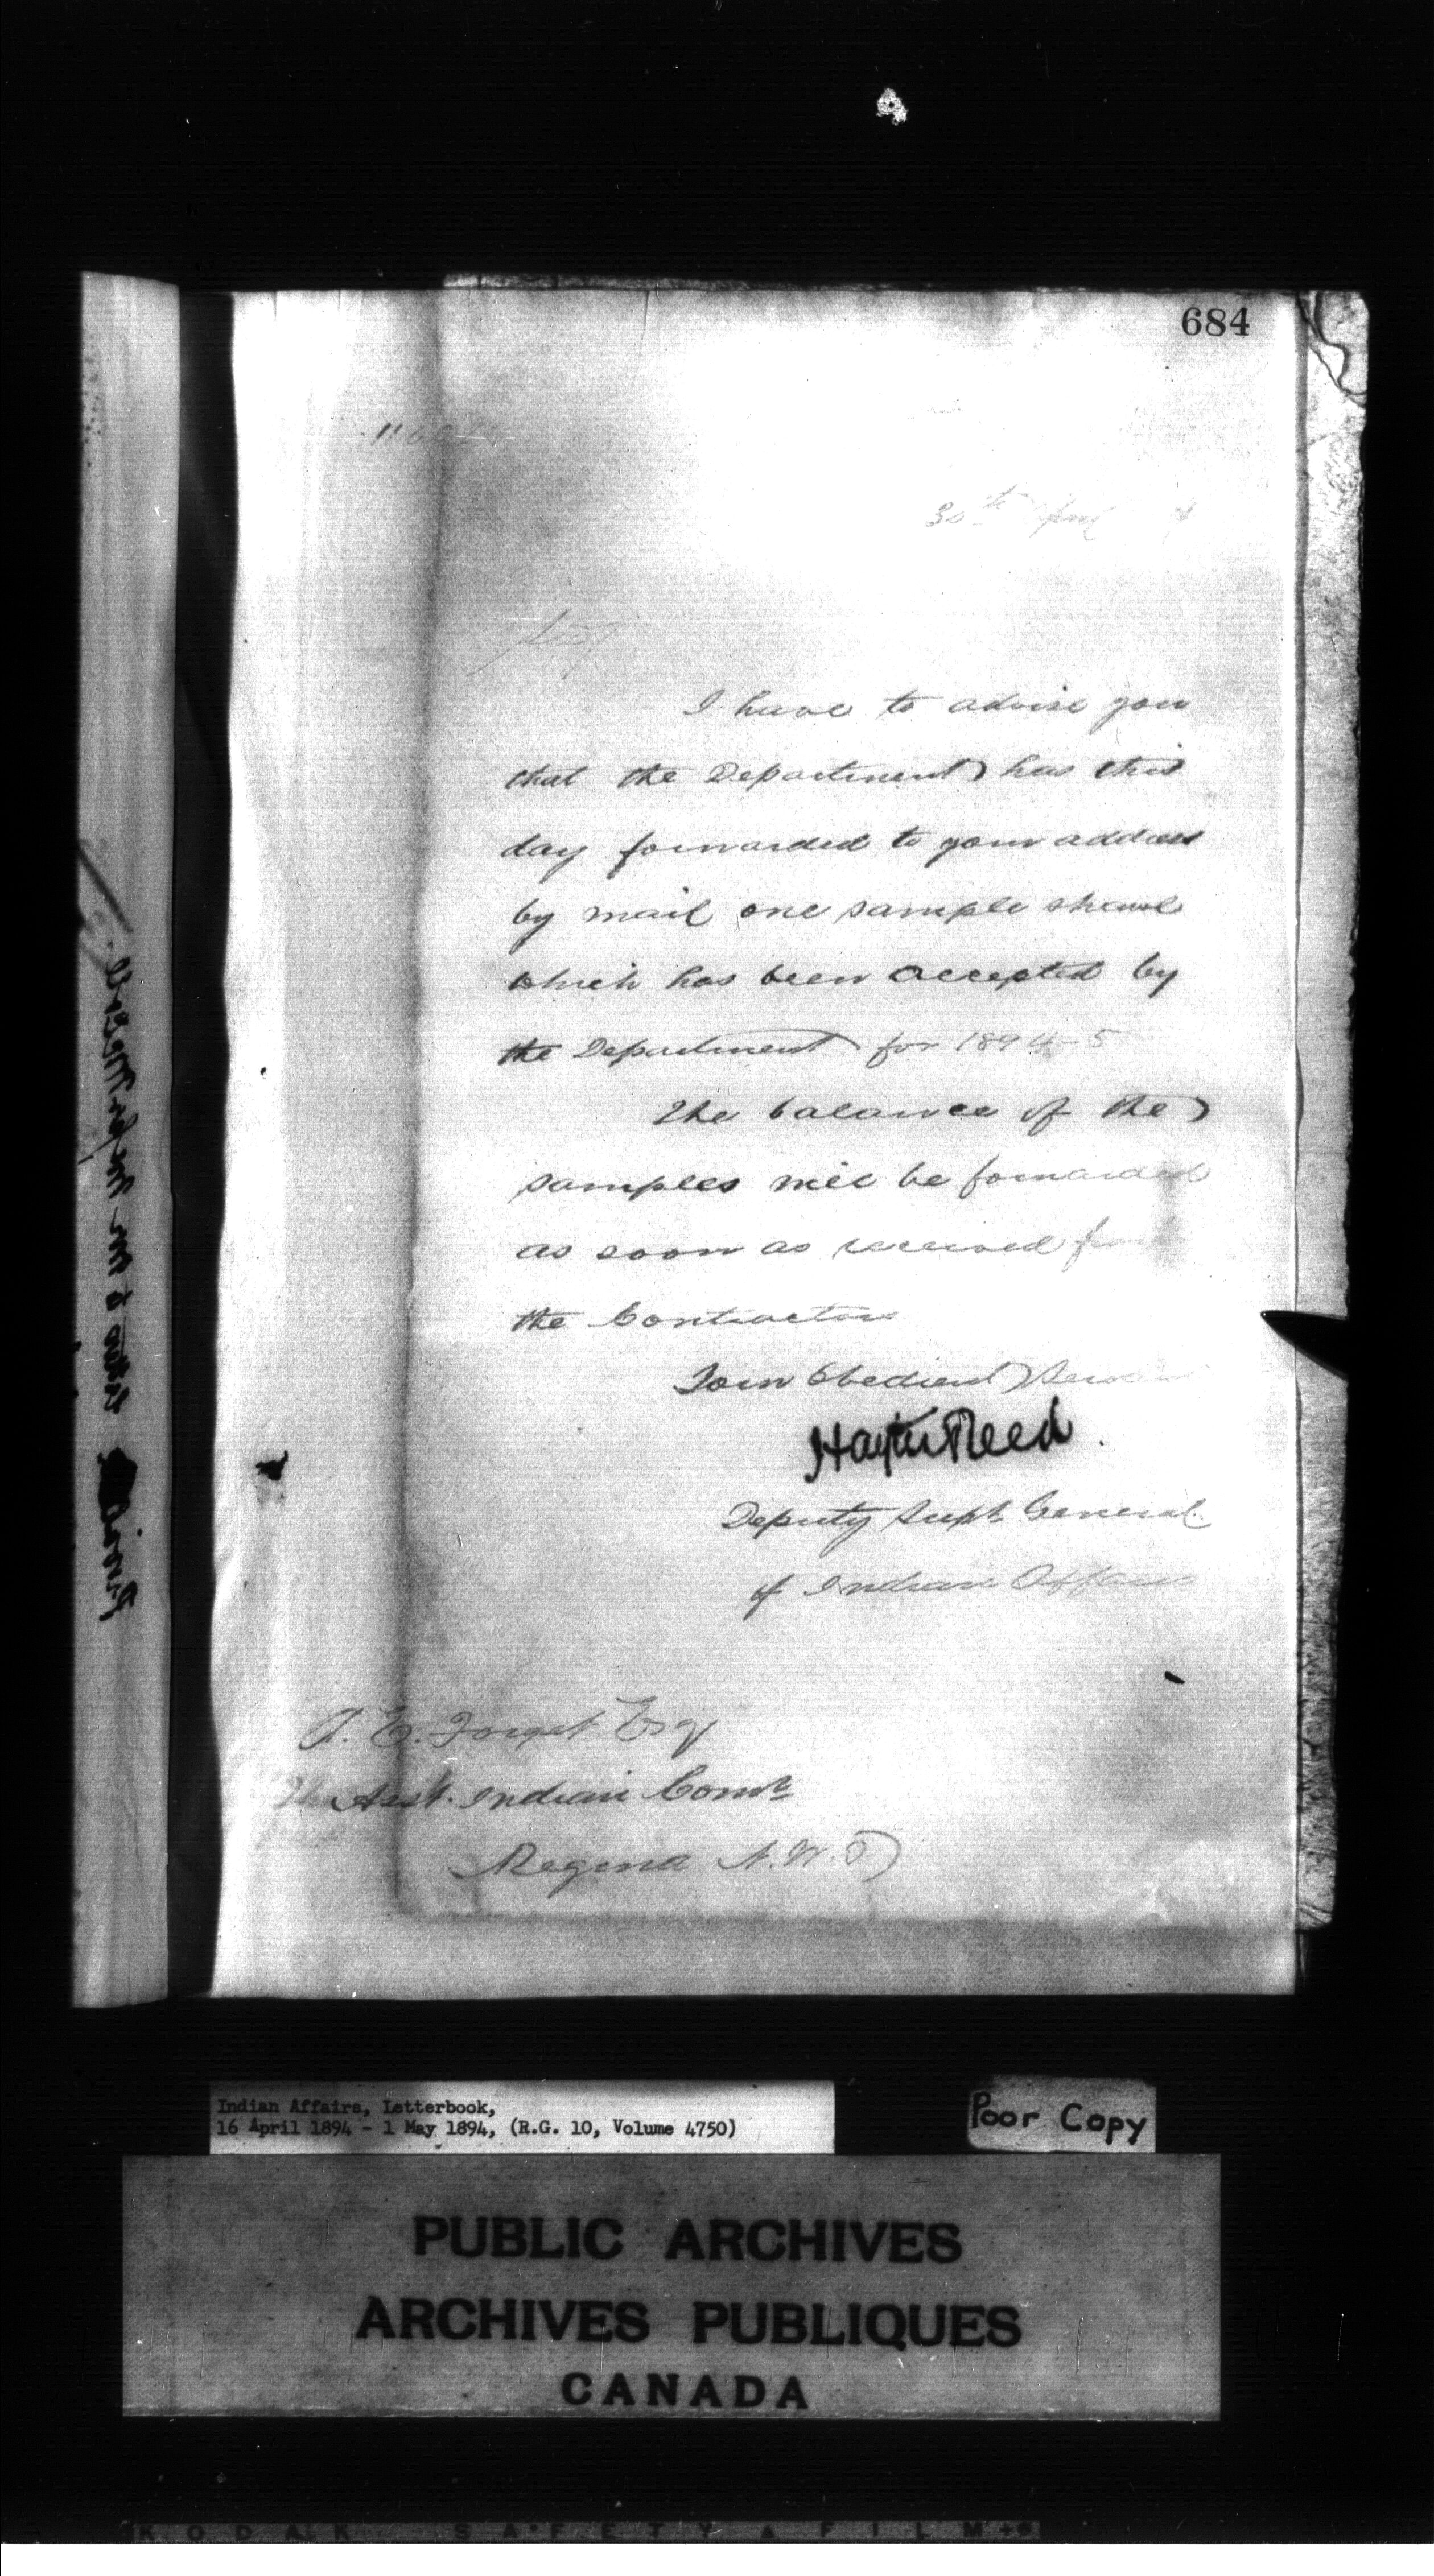 684
30th April
Sir,
I have to advise you
that the Department has this
day forwarded to your address
by mail one sample shawl
which has been accepted by
the Department for 1894-5
The balance of the
samples will be forwarded
as soon as received from
the Contractors
Your Obedient Servant
Hayter Reed
Deputy Supt General
of Indian Affairs
A. E. Forget Esq
The Asst. Indian Comr
Regina N.W.T
Indian Affairs, Letterbook,
16 April 1894 - 1 May 1894, (R.G. 10, Volume 4750)
Poor Copy
PUBLIC ARCHIVES
ARCHIVES PUBLIQUES
CANADA
KODAK SAFETY FILM